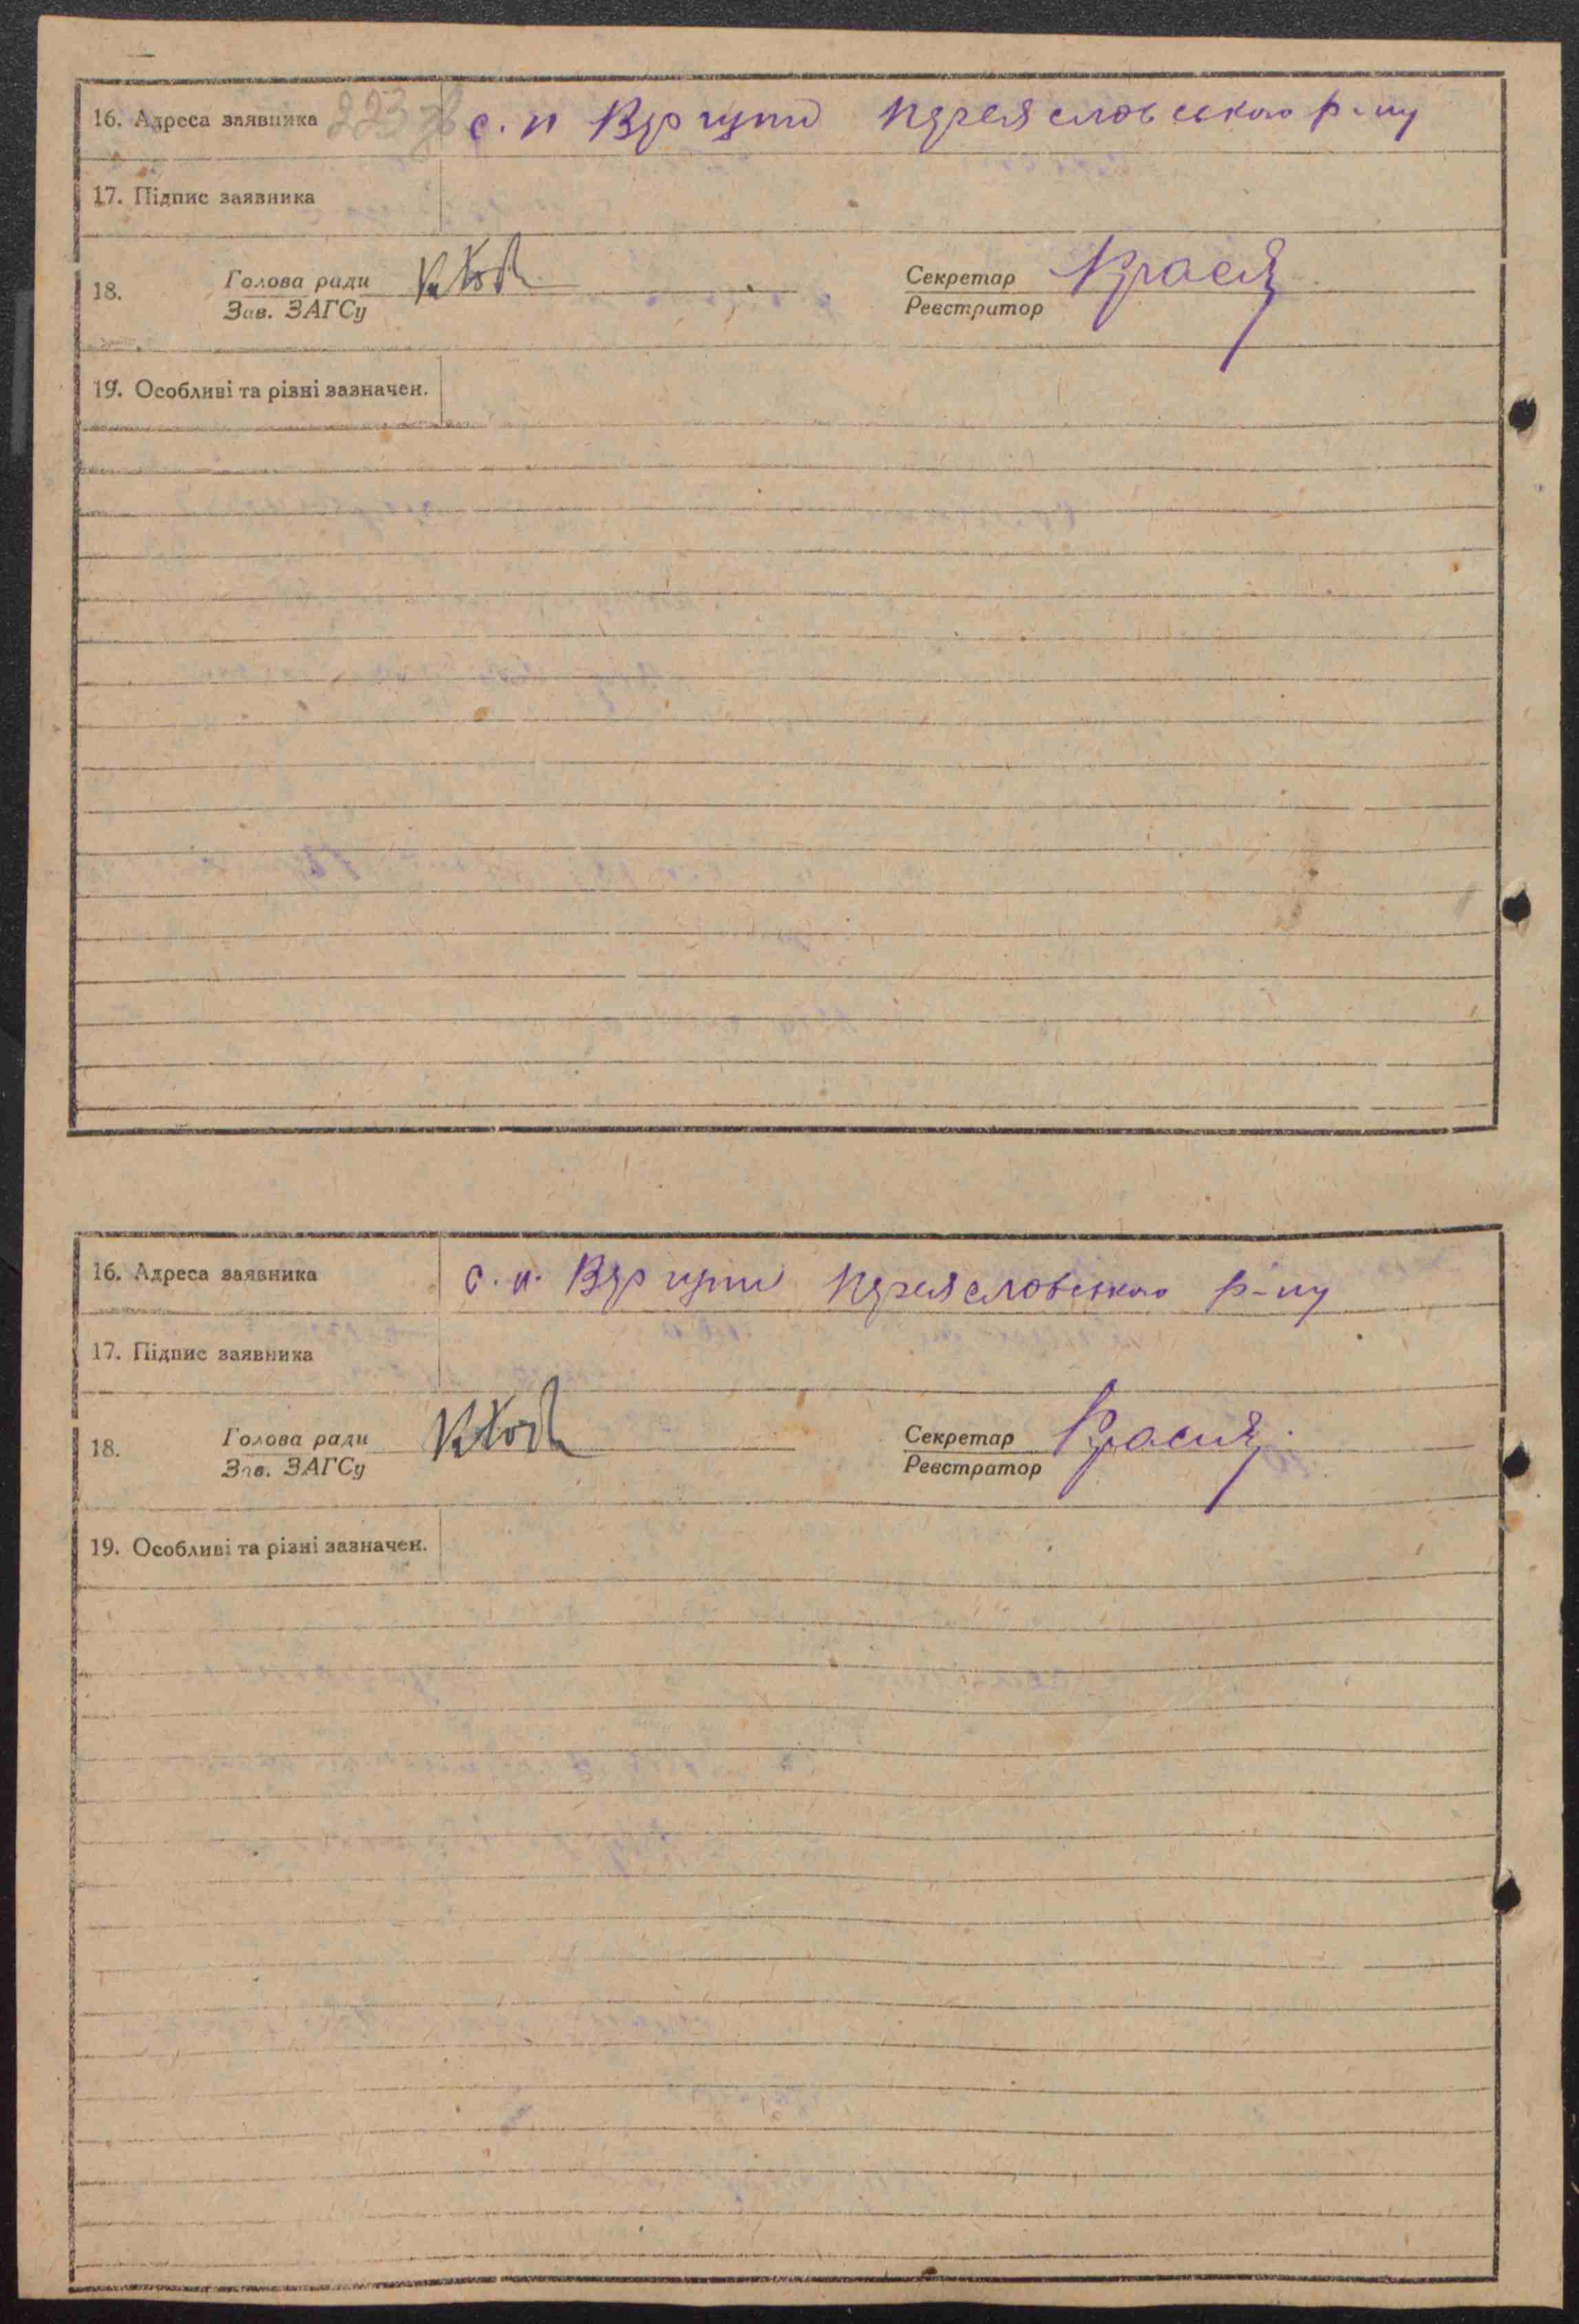 16. Адреса заявника 223 с. п Вергуни Переясловського р-ну
17. Підпис заявника
18. Голова ради Секретар
Зав. ЗАГСу Реєстратор
19. Особливі та різні зазначен.
16. Адреса заявника с. п. Вергуни Переясловського р-ну
17. Підпис заявника
18. Голова ради Секретар
Зав. ЗАГСу Реєстратор
19. Особливі та різні зазначен.